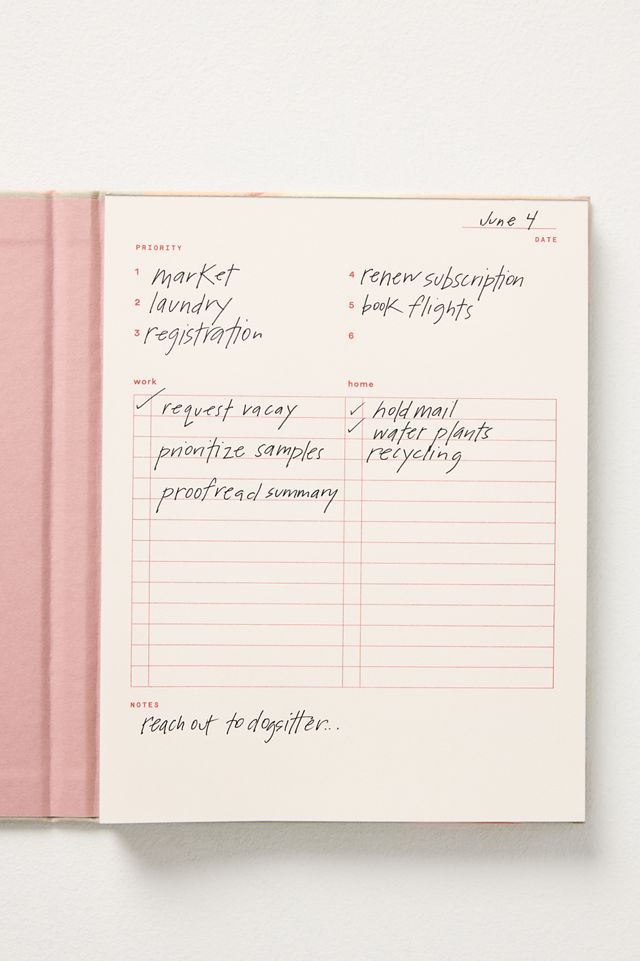 June 4
DATE
PRIORITY
1 market
2 laundry
3 registration
4 renew subscription
5 book flights
6
work
✓ request vacay
prioritize samples
proofread summary
home
✓ hold mail
✓ water plants
recycling
NOTES
reach out to dogsitter...